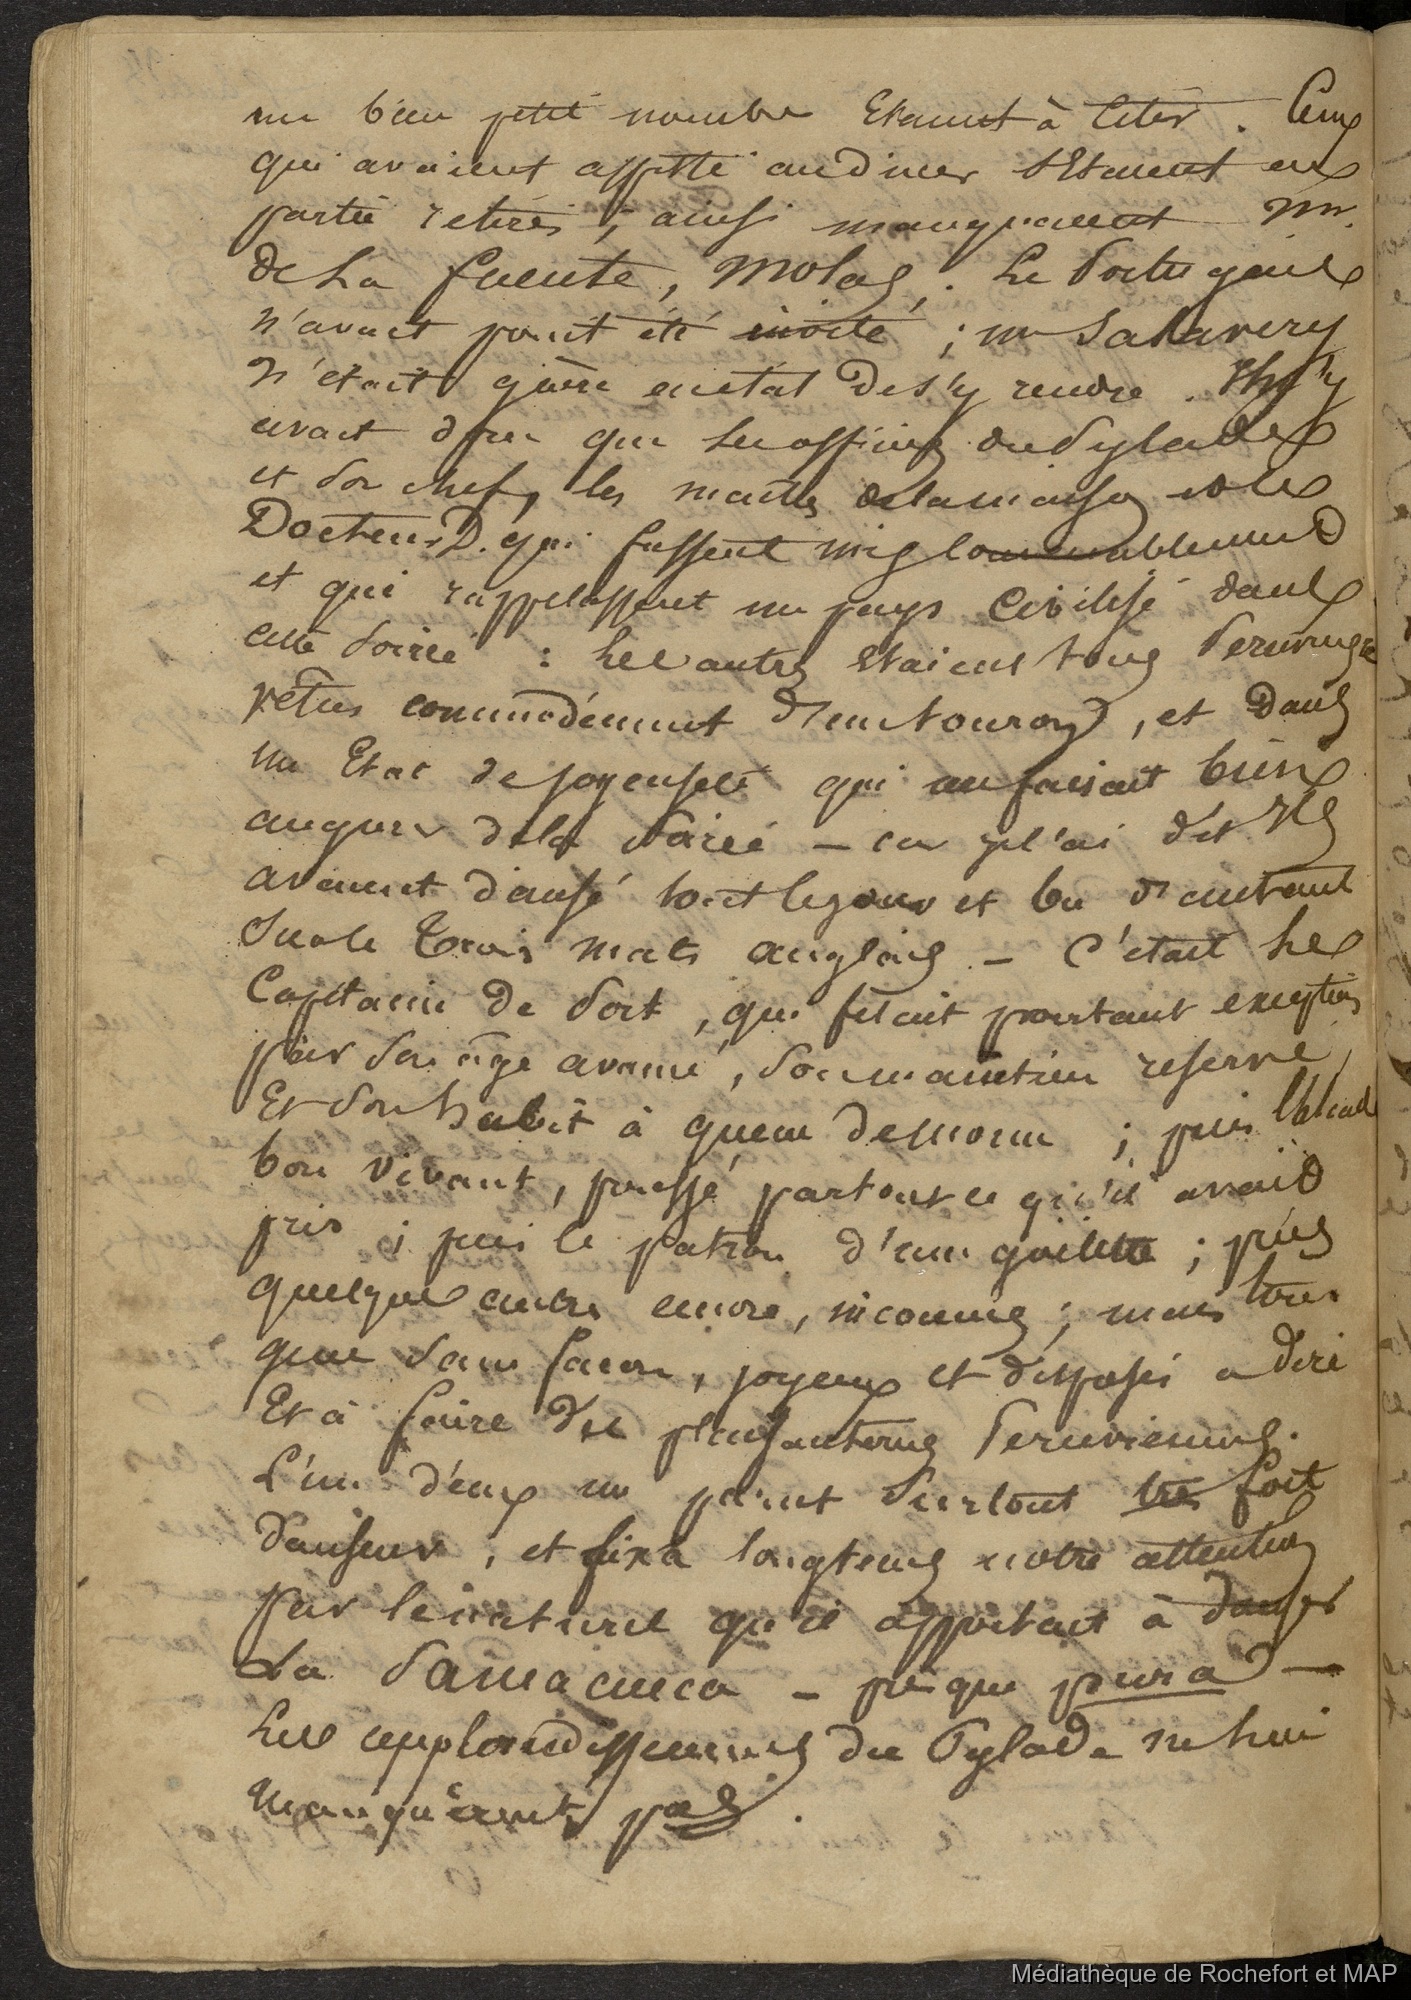 un bien petit nombre etaient à citer. Ceux
qui avaient assisté au diner s'etaient en
partie retirés ; ainsi manquaient Mr.
de La fuente, Molas, . Le Portugais
n'avait point été invité ; mr Salaverry
n'était guère en état de s'y rendre. Il n'y
avait donc que les officiers du Pylade
et son chef, les maitres de la maison et le
Docteur D. qui fussent mis
et qui rappelassent un pays civilisé dans
cette soirée : les autres etaient tous Peruviens
vetus commodément, et dans
un Etat de joyenseté qui me faisait bien
augurer de la soirée – car je l'ai dit ils
avaient dansé tout le jour et bu d'autant
sur le trois mats anglais – C'était le
Capitaine de Port, qui fesait pourtant exception
par son âge avancé, son maintien reservé,
Et son habit à queue de morue ; puis l'Alcade
bon vivant, poussé par tout ce qu'il avait
pris ; puis le patron d'une goëlette ; puis
quelques autres encore, inconnus ; mais tous
gens sans facon, joyeux et disposés a dire
Et à faire des plaisanteries Peruviennes.
L'un d'eux me parut surtout tres fort
danseur, et fixa longtems notre attention
par le naturel qu'il apportait à danser
La Samacueca –
Les applaudissemens du Pylade ne lui
manquèrent pas.
Médiathèque de Rochefort et MAP